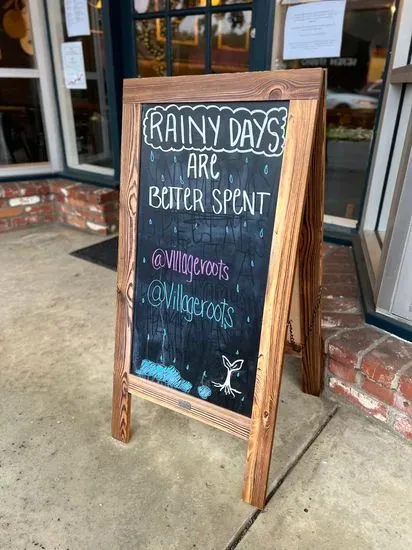 RAINY DAYS
ARE
BETTER SPENT
@Villageroots
@Villageroots